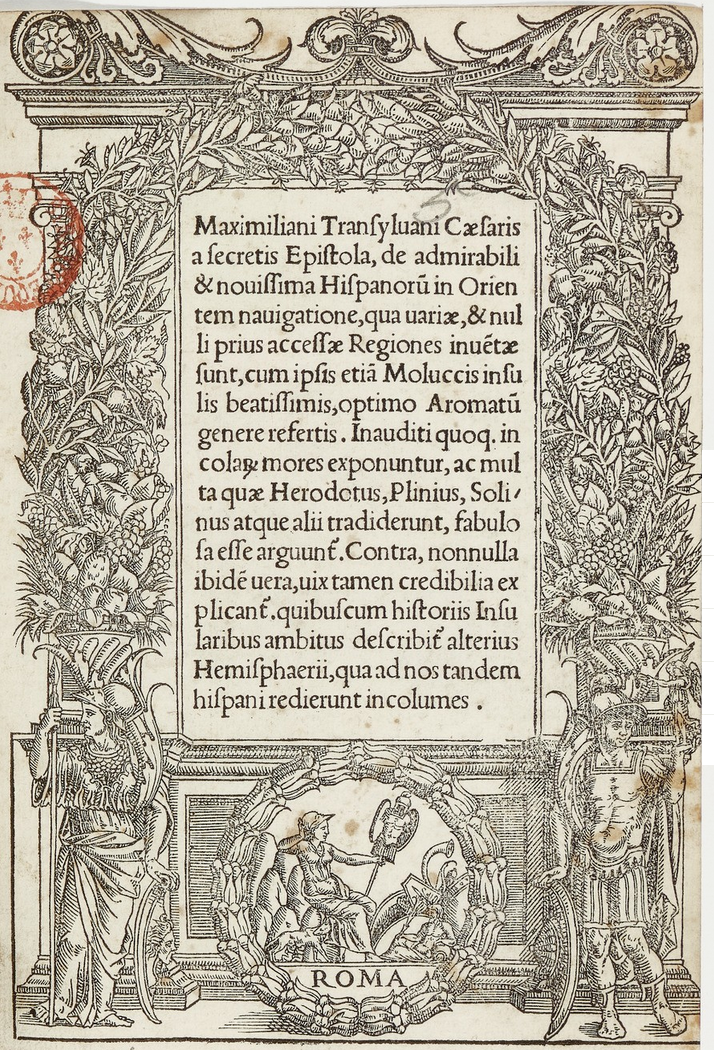 Maximiliani Tranſyluani Cæſaris
a ſecretis Epiſtola, de admirabili
& nouiſſima Hiſpanorū in Orien
tem nauigatione, qua uariæ, & nul
li prius acceſſæ Regiones inuētæ
ſunt, cum ipſis etiā Moluccis inſu
lis beatiſſimis, optimo Aromatū
genere refertis. Inauditi quoq. in
colaꝝ mores exponuntur, ac mul
ta quæ Herodotus, Plinius, Soli⸗
nus atque alii tradiderunt, fabulo
ſa eſſe arguunt̄. Contra, nonnulla
ibidē uera, uix tamen credibilia ex
plicant̄. quibuſcum hiſtoriis Inſu
laribus ambitus deſcribit̄ alterius
Hemiſphaerii, qua ad nos tandem
hiſpani redierunt incolumes .
ROMA